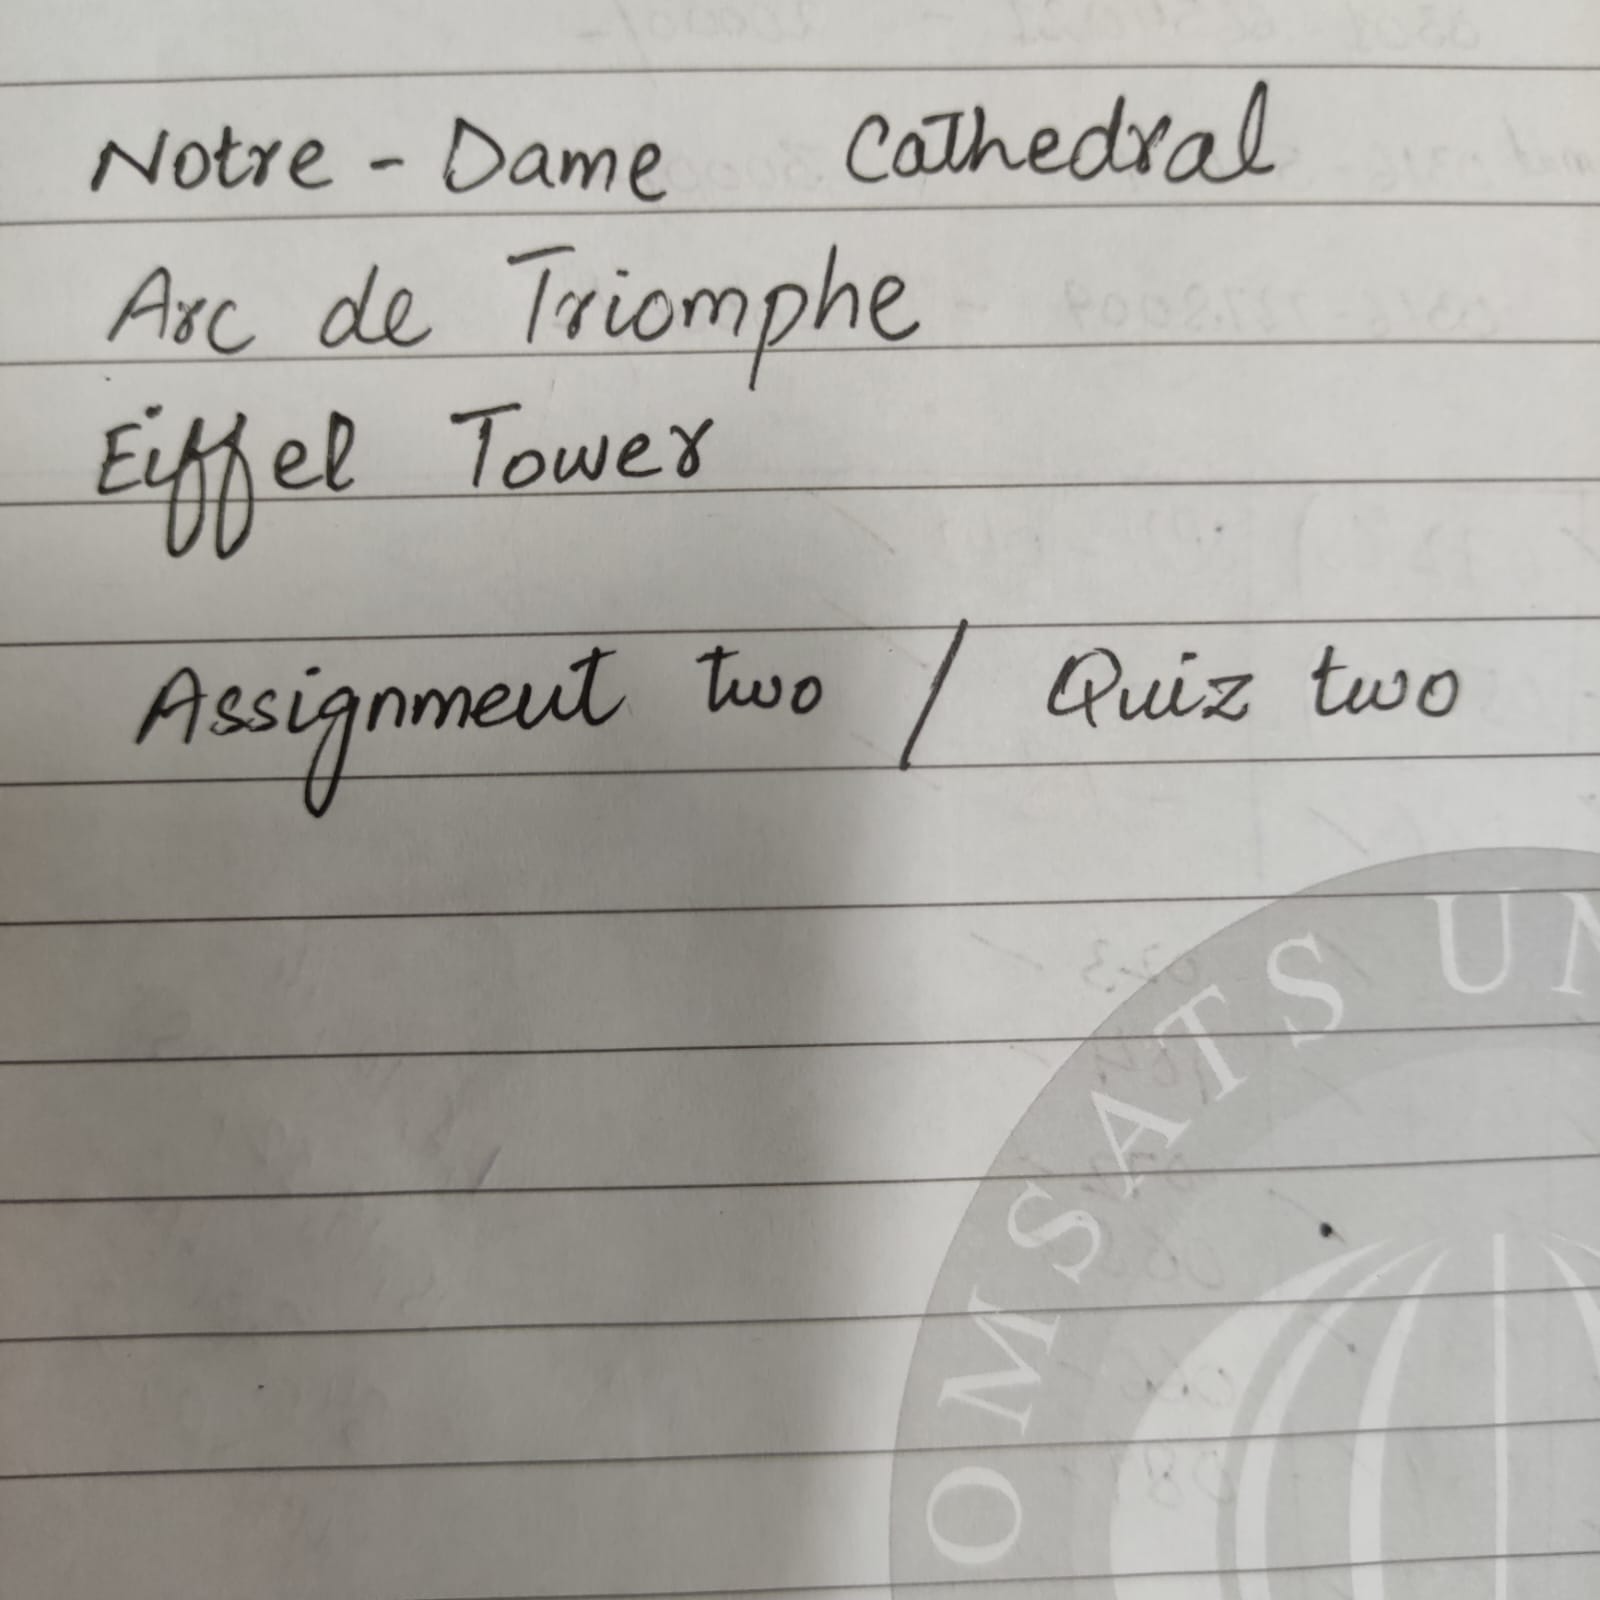 Notre - Dame Cathedral
Arc de Triomphe
Eiffel Tower
Assignment two / Quiz two
OMSATS UN